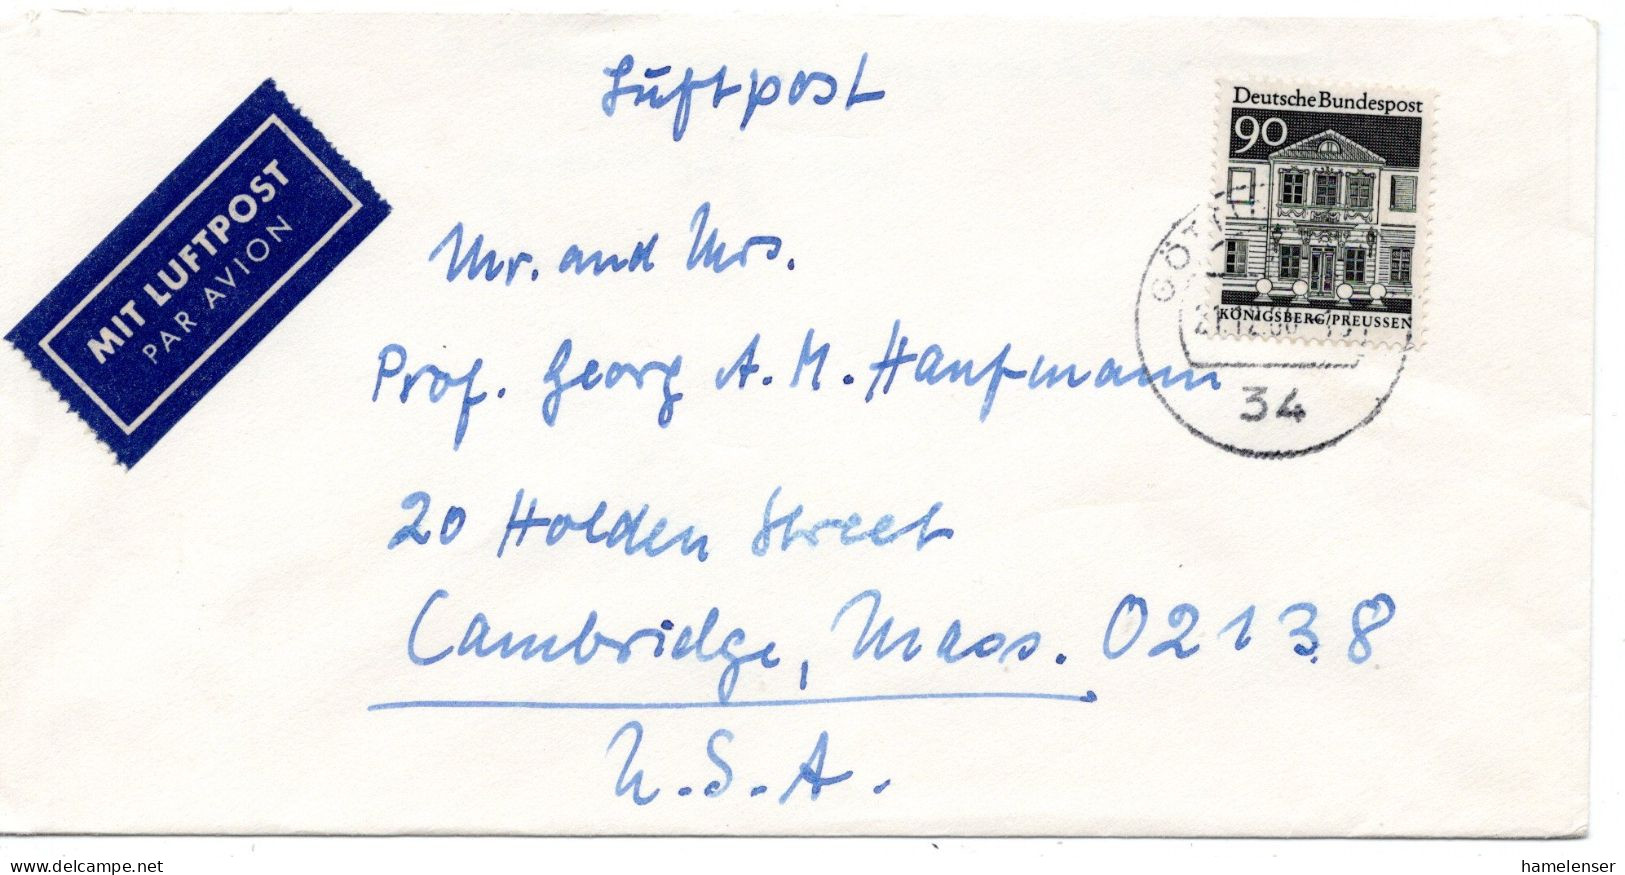 Luftpost
MIT LUFTPOST
PAR AVION
Deutsche Bundespost
90
KÖNIGSBERG/PREUSSEN
34
Mr. and Mrs.
Prof. Georg A. M. Hanfmann
20 Holden Street
Cambridge, Mass. 02138
U.S.A.
www.delcampe.net
hamelenser